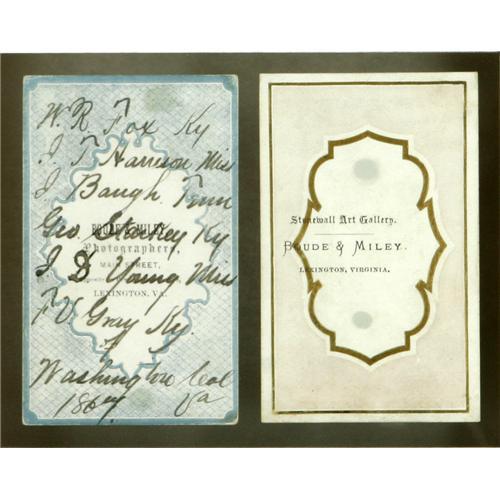 W. R. Fox Ky
J. T. Harrison Miss
J Baugh. Tenn
BOUDE & MILEY
Geo. Starkey Ky
Photographers,
MAIN STREET,
J D Young Miss
LEXINGTON, VA.
F V Gray Ky.
Washington Col
1867 Va
Stonewall Art Gallery.
BOUDE & MILEY.
LEXINGTON, VIRGINIA.